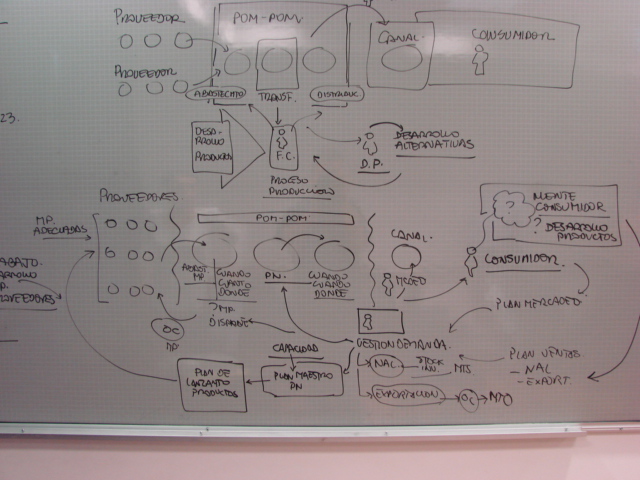 PROVEEDOR
POM-POM.
CANAL.
CONSUMIDOR
PROVEEDOR
ABASTECMTO
TRANSF.
DISTRIBUC.
23.
DESA-
RROLLO
PRODUCTOS
F.C.
PROCESO
PRODUCCION
D.P.
DESARROLLO
ALTERNATIVAS
PROVEEDORES
MP.
ADECUADAS
POM-POM
CANAL.
MENTE
CONSUMIDOR
?
? DESARROLLO
PRODUCTOS
CONSUMIDOR.
ABAST.
MP
CUANDO
CUANTO
DONDE
PN.
CUANDO
CUANTO
DONDE
MCDEO
ABAJO.
PROVEEDORES
? MP.
DISPARE
OC
MP
PLAN MERCADEO.
GESTION DEMANDA.
CAPACIDAD
PLAN MAESTRO
PN
PLAN DE
LANZAMTO
PRODUCTOS
NAL
STOCK
INV.
MTS
PLAN VENTAS.
- NAL
- EXPORT.
EXPORTACION
OC
MTO